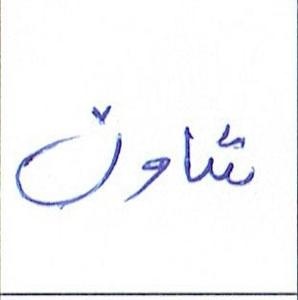 شاون